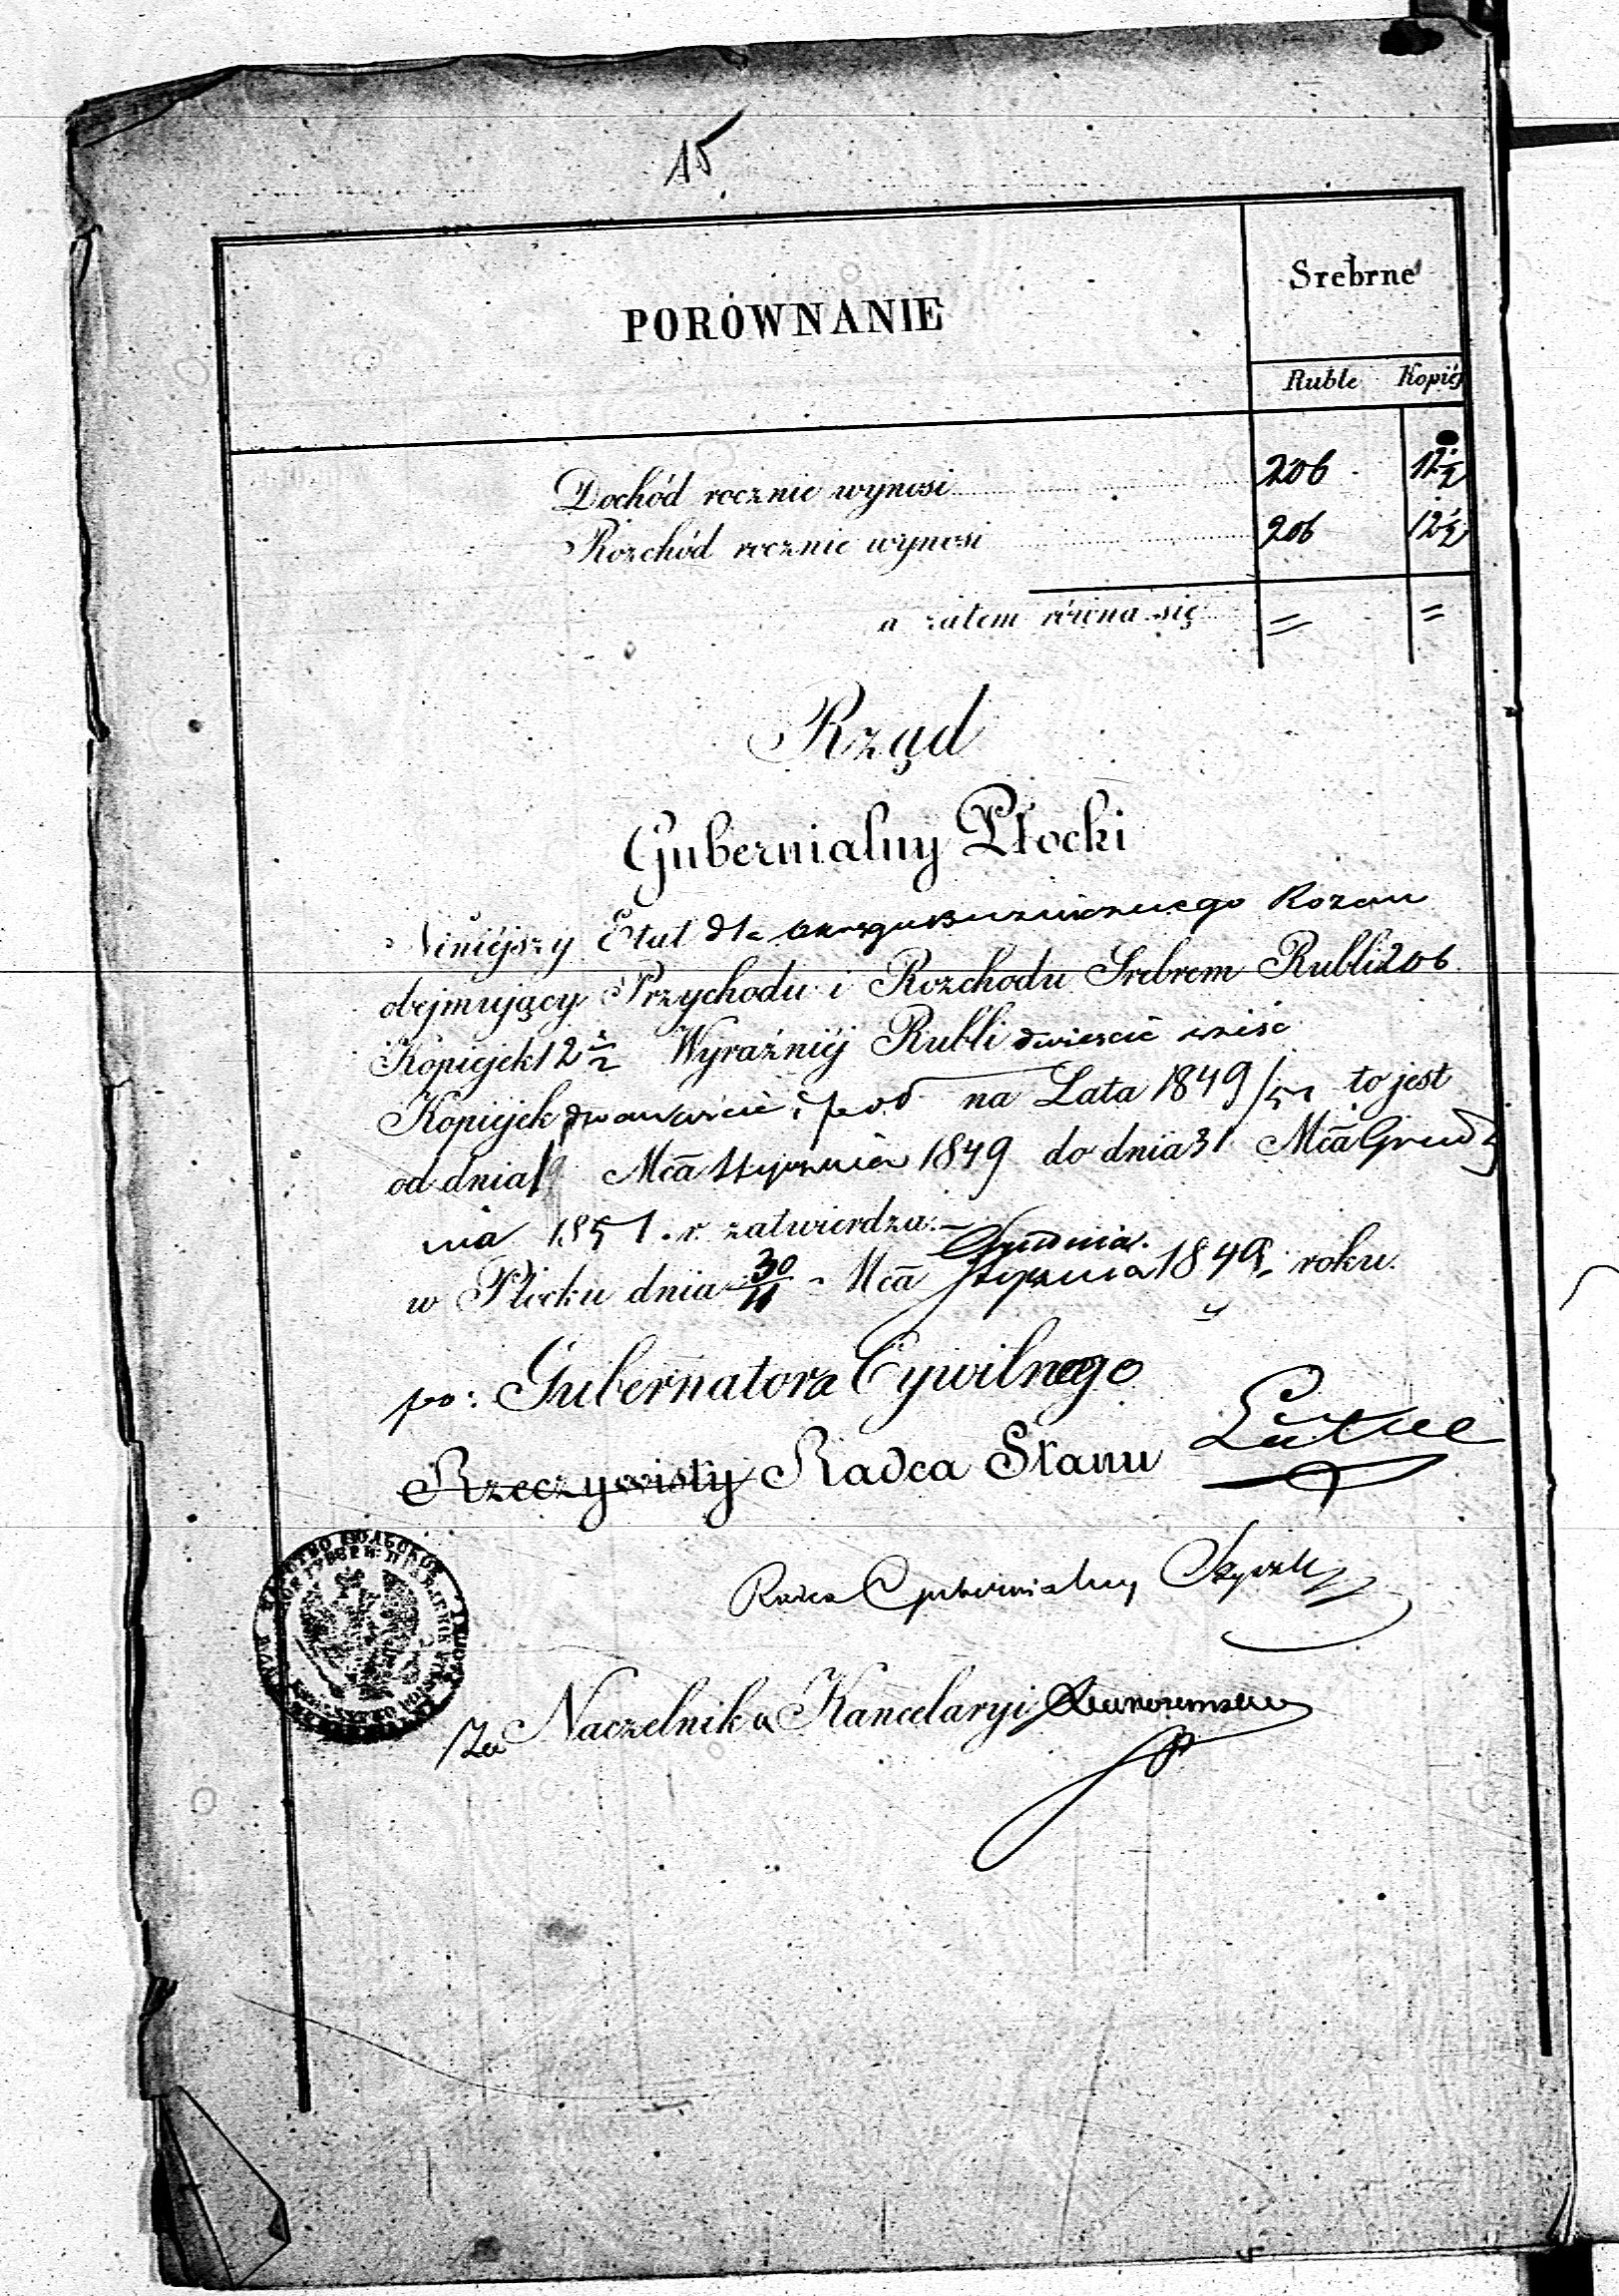 15
PORÓWNANIE
Srebrne
Ruble Kopiej
Dochód rocznie wynosi 206 12½
Rozchód rocznie wynosi 206 12½
a zatem równa się = =
Rząd
Gubernialny Płocki
Niniejszy Etat dla Okręgu Bużniczego Rożan
obejmujący Przychodu i Rozchodu Srebrem Rubli 206
Kopiejek 12 ½ Wyraźniéj Rubli dwieście sześć
Kopiejek dwanaście i pół na Lata 1849/51 to jest
od dnia 1 Mca Stycznia 1849 do dnia 31 Mca Grud
nia 1851 r. zatwierdza.
Grudnia
w Płocku dnia 30/11 Mca Stycznia 1849 roku.
po: Gubernatora Cywilnego
Rzeczywisty Radca Stanu
Radca Gubernialny
Za Naczelnika Kancelaryi